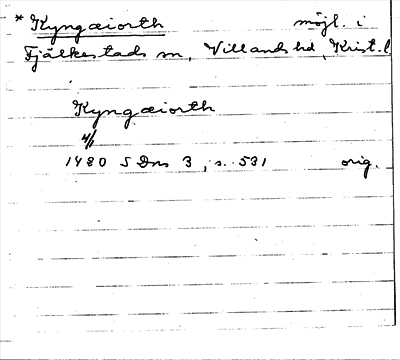 * Kyngæiorth möjl. i
Fjälkestads sn, Villands hd, Krist. l
Kyngæiorth
4/1
1420 SDns 3, s. 531 orig.